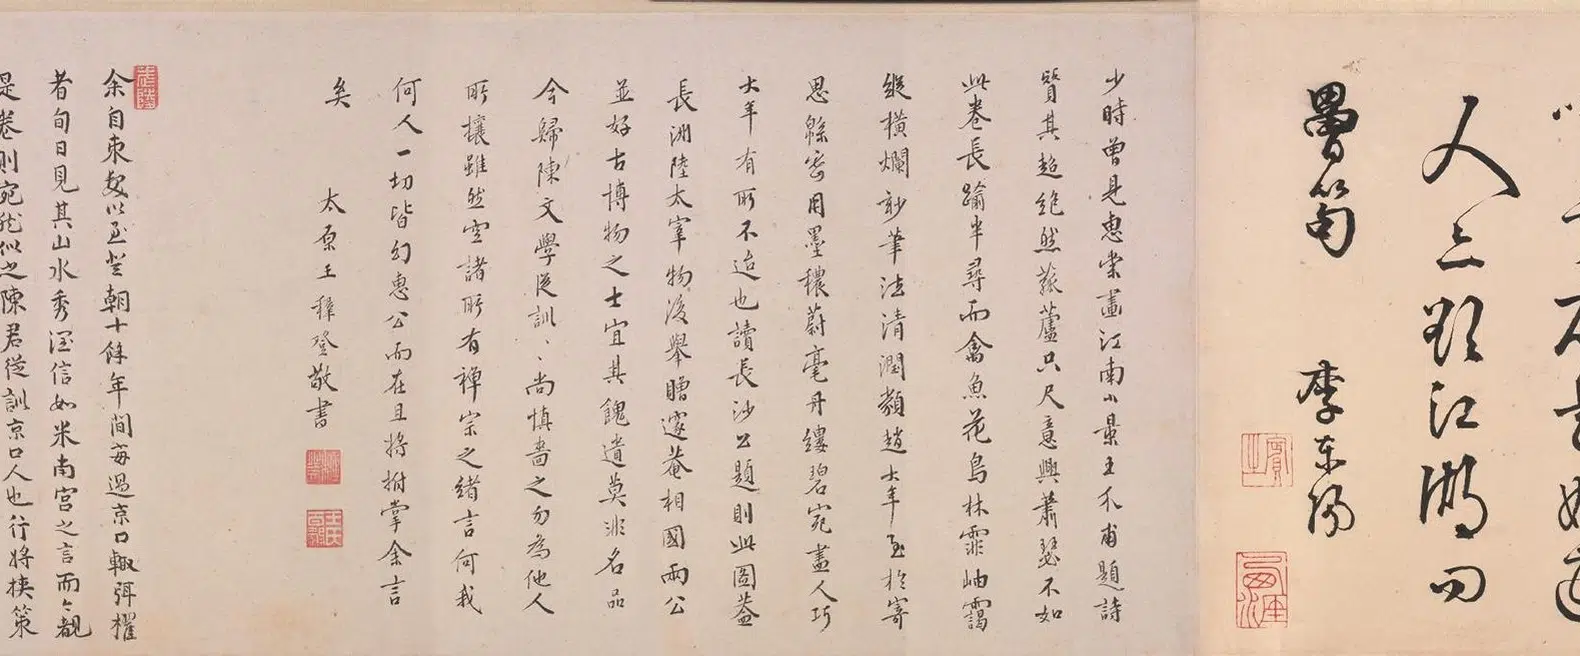 人三歎江湖回
曡筍　李東陽
少時曾見惠崇畫江南小景王介甫題詩
賢其超絶然菰蘆只尺意興蕭瑟不如
此卷長踰半尋而禽魚花鳥林霏岫靄
縱橫爛訬筆法清潤類趙大年至於寄
思緜密用墨穠蔚毫丹縷碧宛盡人巧
大年有所不迨也讀長沙公題則此圖蓋
長洲陸太宰物後舉贈邃菴相國兩公
並好古博物之士宜其餽遺莫非名品
今歸陳文學從訓、尚慎嗇之勿為他人
所攘雖然空諸所有禪宗之緒言何我
何人一切皆幻惠公而在且將拊掌余言
矣　太原王穉登敬書
余自束髮以至登朝十餘年間每過京口輙弭櫂
者旬日見其山水秀潤信如米南宮之言而今觀
是卷則宛然似之陳君從訓京口人也行將挾策